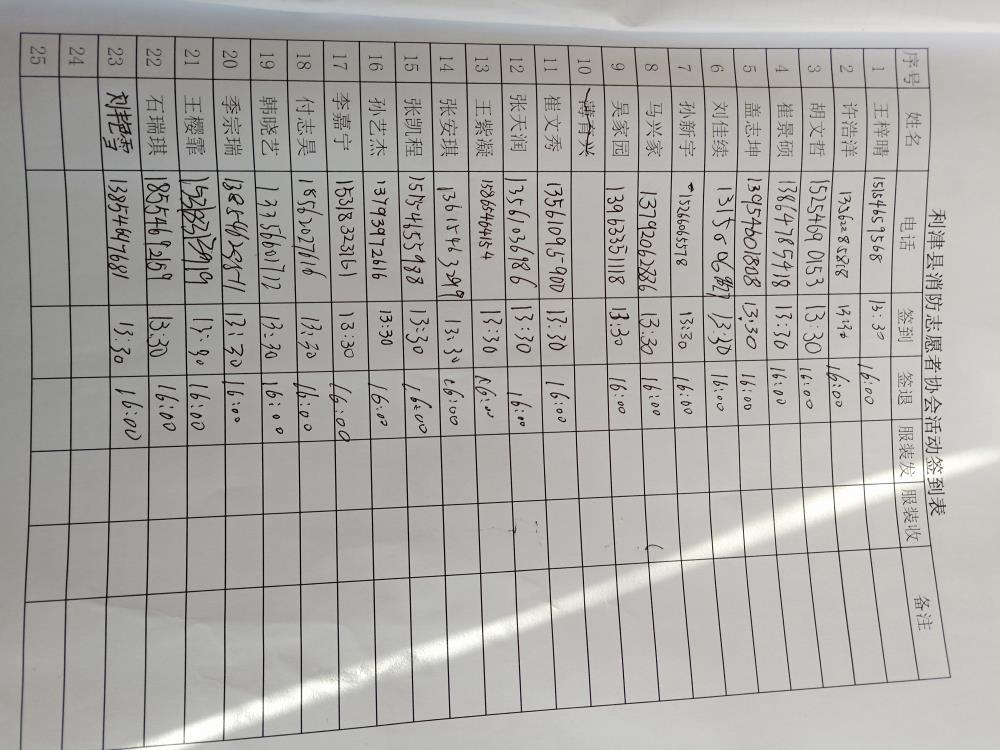 利津县消防志愿者协会活动签到表
序号 姓名 电话 签到 签退 服装发 服装收 备注
1 王梓晴 15154659568 13:30 16:00
2 许浩洋 13562285858 13:30 16:00
3 胡文哲 15254690153 13:30 16:00
4 崔景硕 13864785418 13:30 16:00
5 盖志坤 13954601808 13:30 16:00
6 刘佳续 13:30 16:00
7 孙新宇 15266065578 13:30 16:00
8 马兴家 13792062886 13:30 16:00
9 吴家园 13963351118 13:30 16:00
10 薄育兴
11 崔文秀 13561095900 13:30 16:00
12 张天润 13561036986 13:30 16:00
13 王紫凝 15865464154 13:30 16:00
14 张安琪 13615463299 13:30 16:00
15 张凯程 15154655988 13:30 16:00
16 孙艺杰 13793972616 13:30 16:00
17 李嘉宁 15318323161 13:30 16:00
18 付志昊 18562027616 13:30 16:00
19 韩晓艺 13356601712 13:30 16:00
20 季宗瑞 13854629511 13:30 16:00
21 王樱霏 13:30 16:00
22 石瑞琪 18554691269 13:30 16:00
23 13854647681 13:30 16:00
24
25